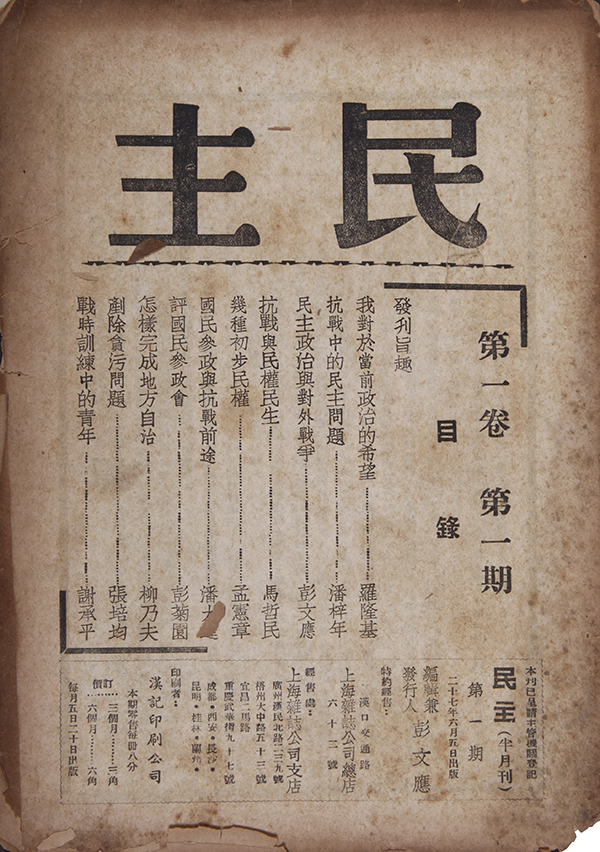 民主
第一卷 第一期
目錄
發刊旨趣
我對於當前政治的希望……羅隆基
抗戰中的民主問題……潘梓年
民主政治與對外戰爭……彭文應
抗戰與民權民生……馬哲民
幾種初步民權……孟憲章
國民參政與抗戰前途……潘大逵
評國民參政會……彭菊園
怎樣完成地方自治……柳乃夫
剷除貪污問題……張培均
戰時訓練中的青年……謝承平
本刊已呈請主管機關登記
民主(半月刊)
第一期
二十七年六月五日出版
編輯兼發行人 彭文應
特約經售:
漢口交通路
上海雜誌公司總店
六十二號
經售處:
上海雜誌公司支店
廣州漢民北路二三九號
梧州大中路五十三號
宜昌二馬路
重慶武庫街九十七號
成都•西安•長沙•
昆明•桂林•蘭州•
印刷者:
漢記印刷公司
本期零售每冊八分
訂價
三個月……三角
六個月……六角
每月五日二十日出版